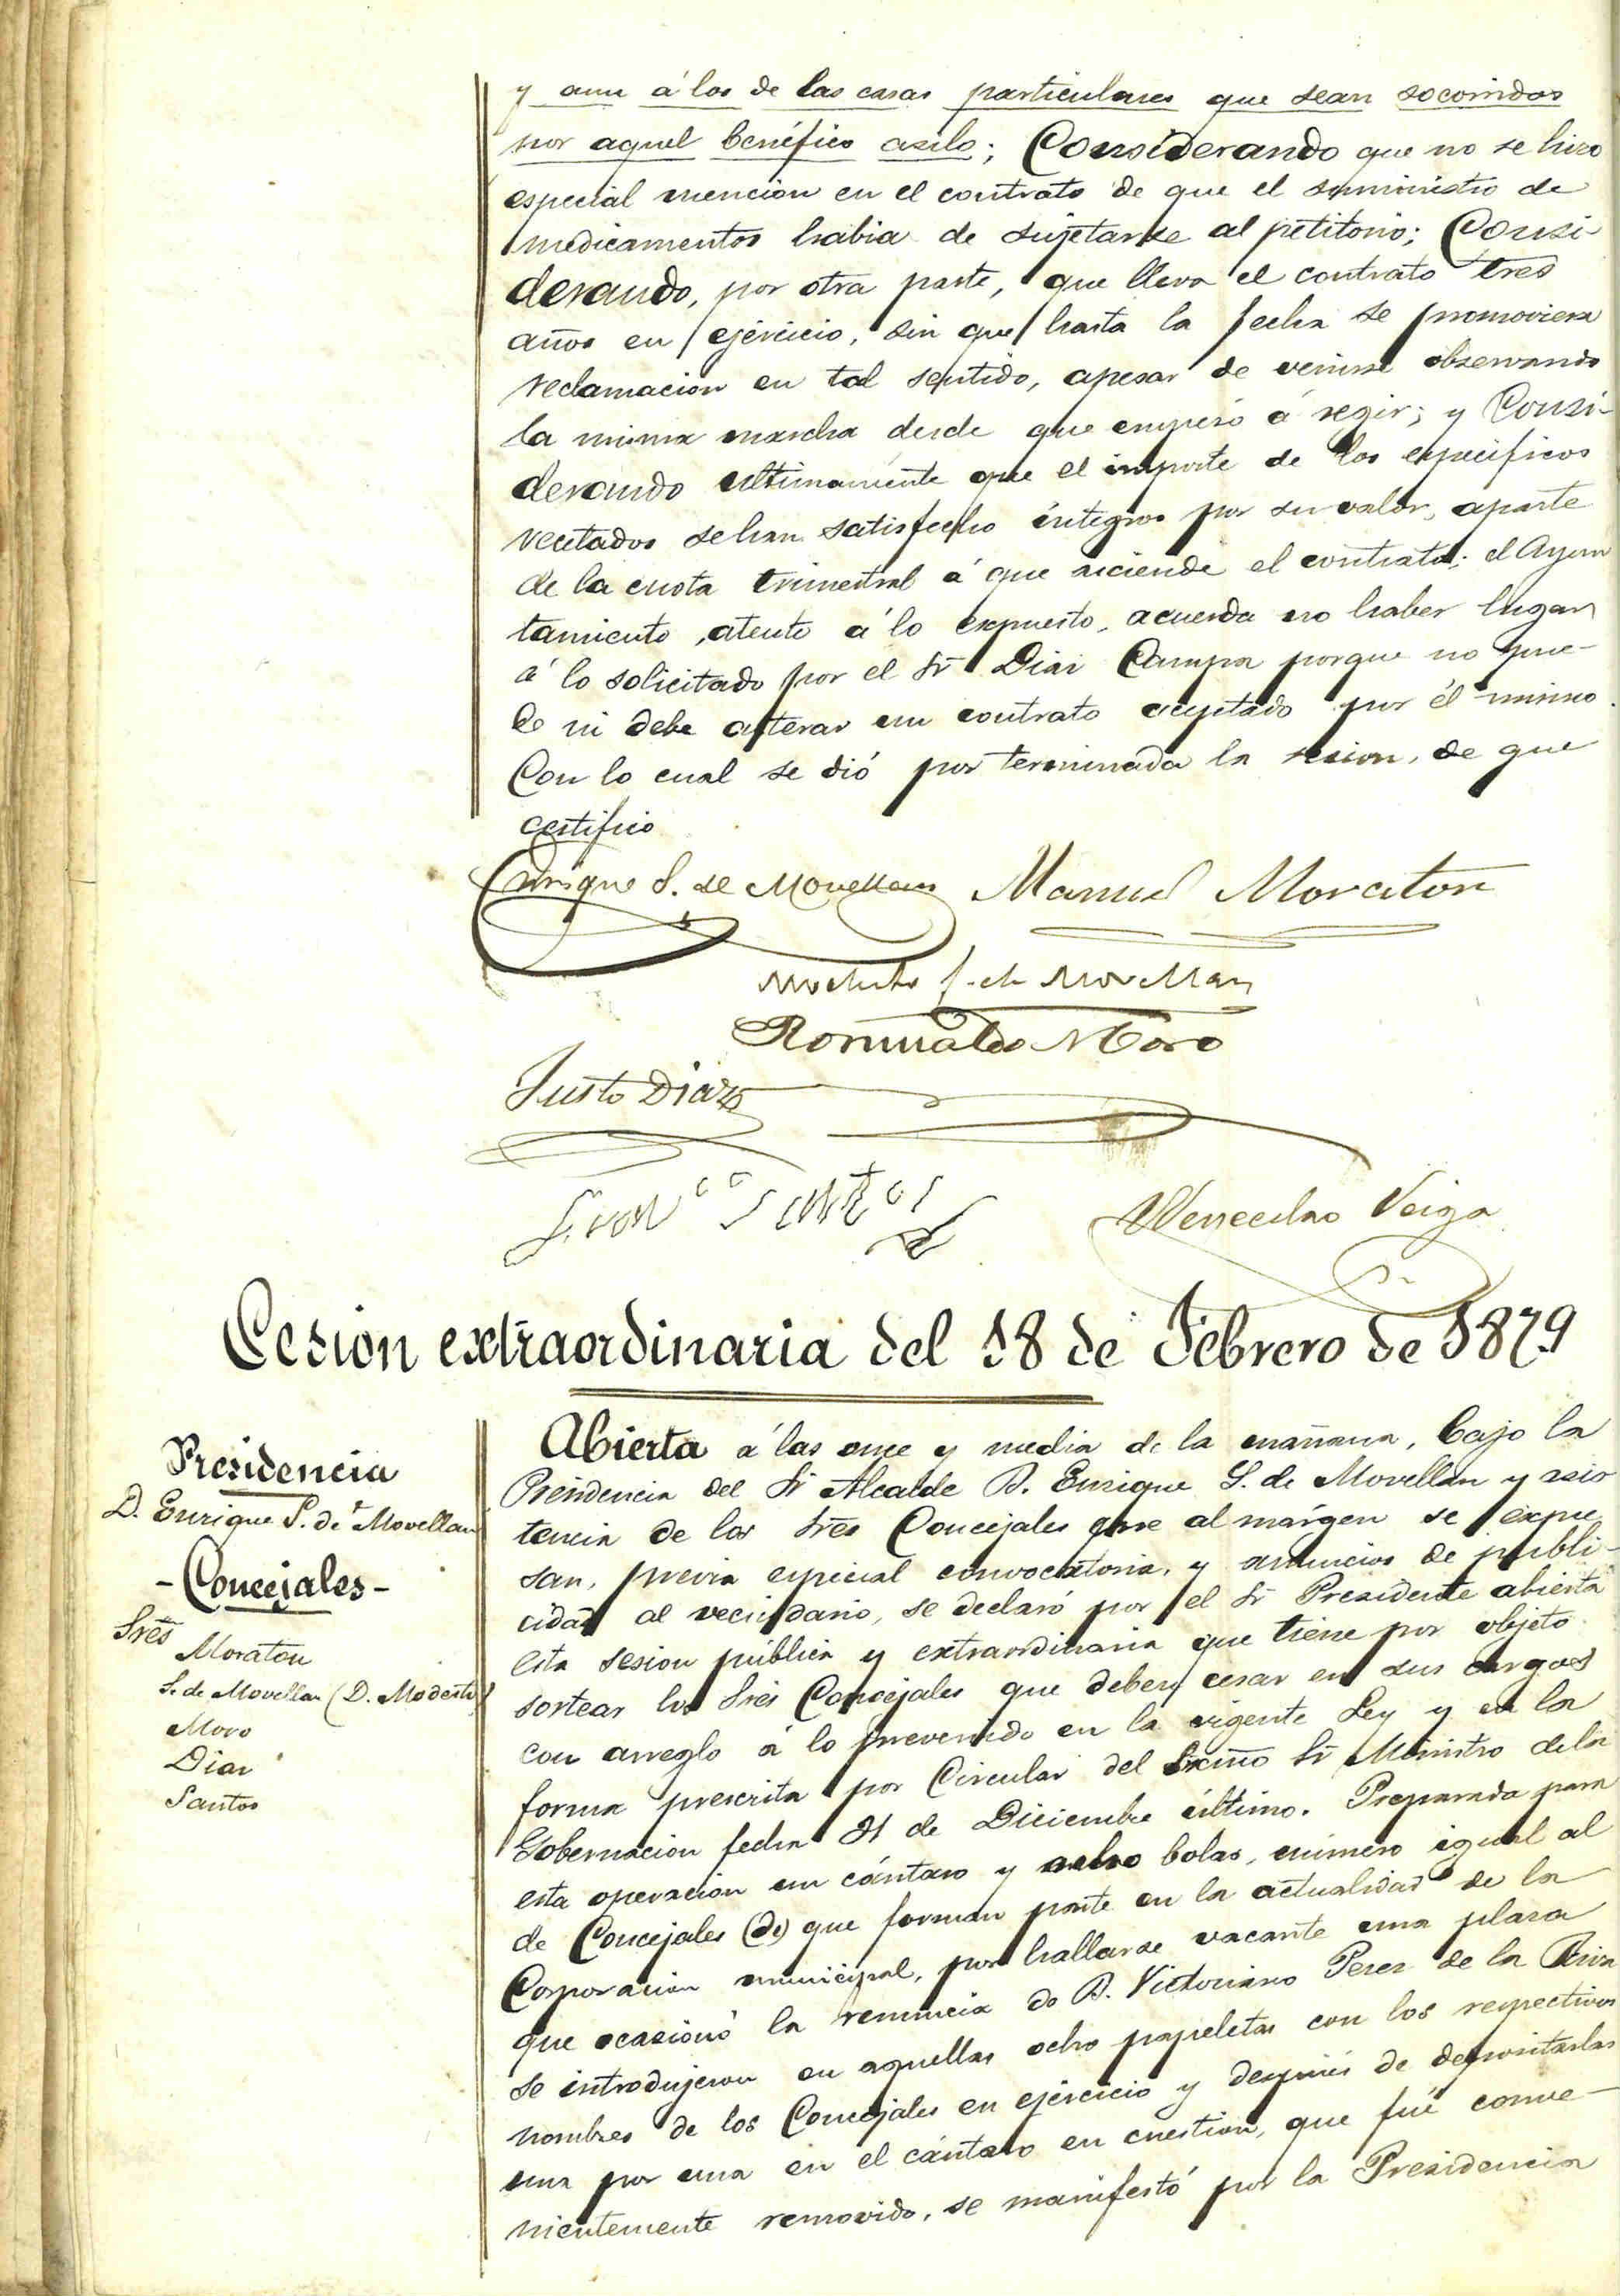 y aun á los de las casas particulares que sean socorridos
por aquel benéfico asilo; Considerando que no se hizo
especial mencion en el contrato de que el suministro de
medicamentos habia de sujetarse al petitorio; Consi-
derando, por otra parte, que lleva el contrato tres
años en ejercicio, sin que hasta la fecha se promoviera
reclamacion en tal sentido, apesar de venirse observando
la misma marcha desde que empezó á regir; y Consi-
derando ultimamente que el importe de los especificos
recetados se han satisfecho integros por su valor, aparte
de la cuota trimestral á que asciende el contrato; el Ayun
tamiento, atento á lo expuesto, acuerda no haber lugar
á lo solicitado por el Sr Diaz Campa porque no pue-
de ni debe alterar un contrato aceptado por él mismo.
Con lo cual se dió por terminada la sesion, de que
certifico
Enrique S. de Movellan Manuel Moraton
Modesto S. de Movellan
Romualdo Moro
Justo Diaz
Santos
Wenceslao Veiga
Cesion extraordinaria del 18 de Febrero de 1879
Presidencia
D. Enrique S. de Movellan
- Concejales -
Sres
Moraton
S. de Movellan (D. Modesto)
Moro
Diaz
Santos
Abierta á las once y media de la mañana, bajo la
Presidencia del Sr Alcalde D. Enrique S. de Movellan y asis
tencia de los Sres Concejales que al márgen se expre
san, previa especial convocatoria, y anuncios de publi-
cidad al vecindario, se declaró por el Sr Presidente abierta
esta sesion pública y extraordinaria que tiene por objeto
sortear los Sres Concejales que deben cesar en sus cargos
con arreglo á lo prevenido en la vigente Ley y en la
forma prescrita por Circular del Excmo Sr Ministro de la
Gobernacion fecha 31 de Diciembre último. Preparada para
esta operacion un cántaro y ocho bolas, número igual al
de Concejales (de) que forman parte en la actualidad de la
Corporacion municipal, por hallarse vacante una plaza
que ocasionó la renuncia de D. Victoriano Perez de la Riva
se introdujeron en aquellas ocho papeletas con los respectivos
nombres de los Concejales en ejercicio y despues de depositarlas
una por una en el cántaro en cuestion, que fué conve-
nientemente removido, se manifestó por la Presidencia